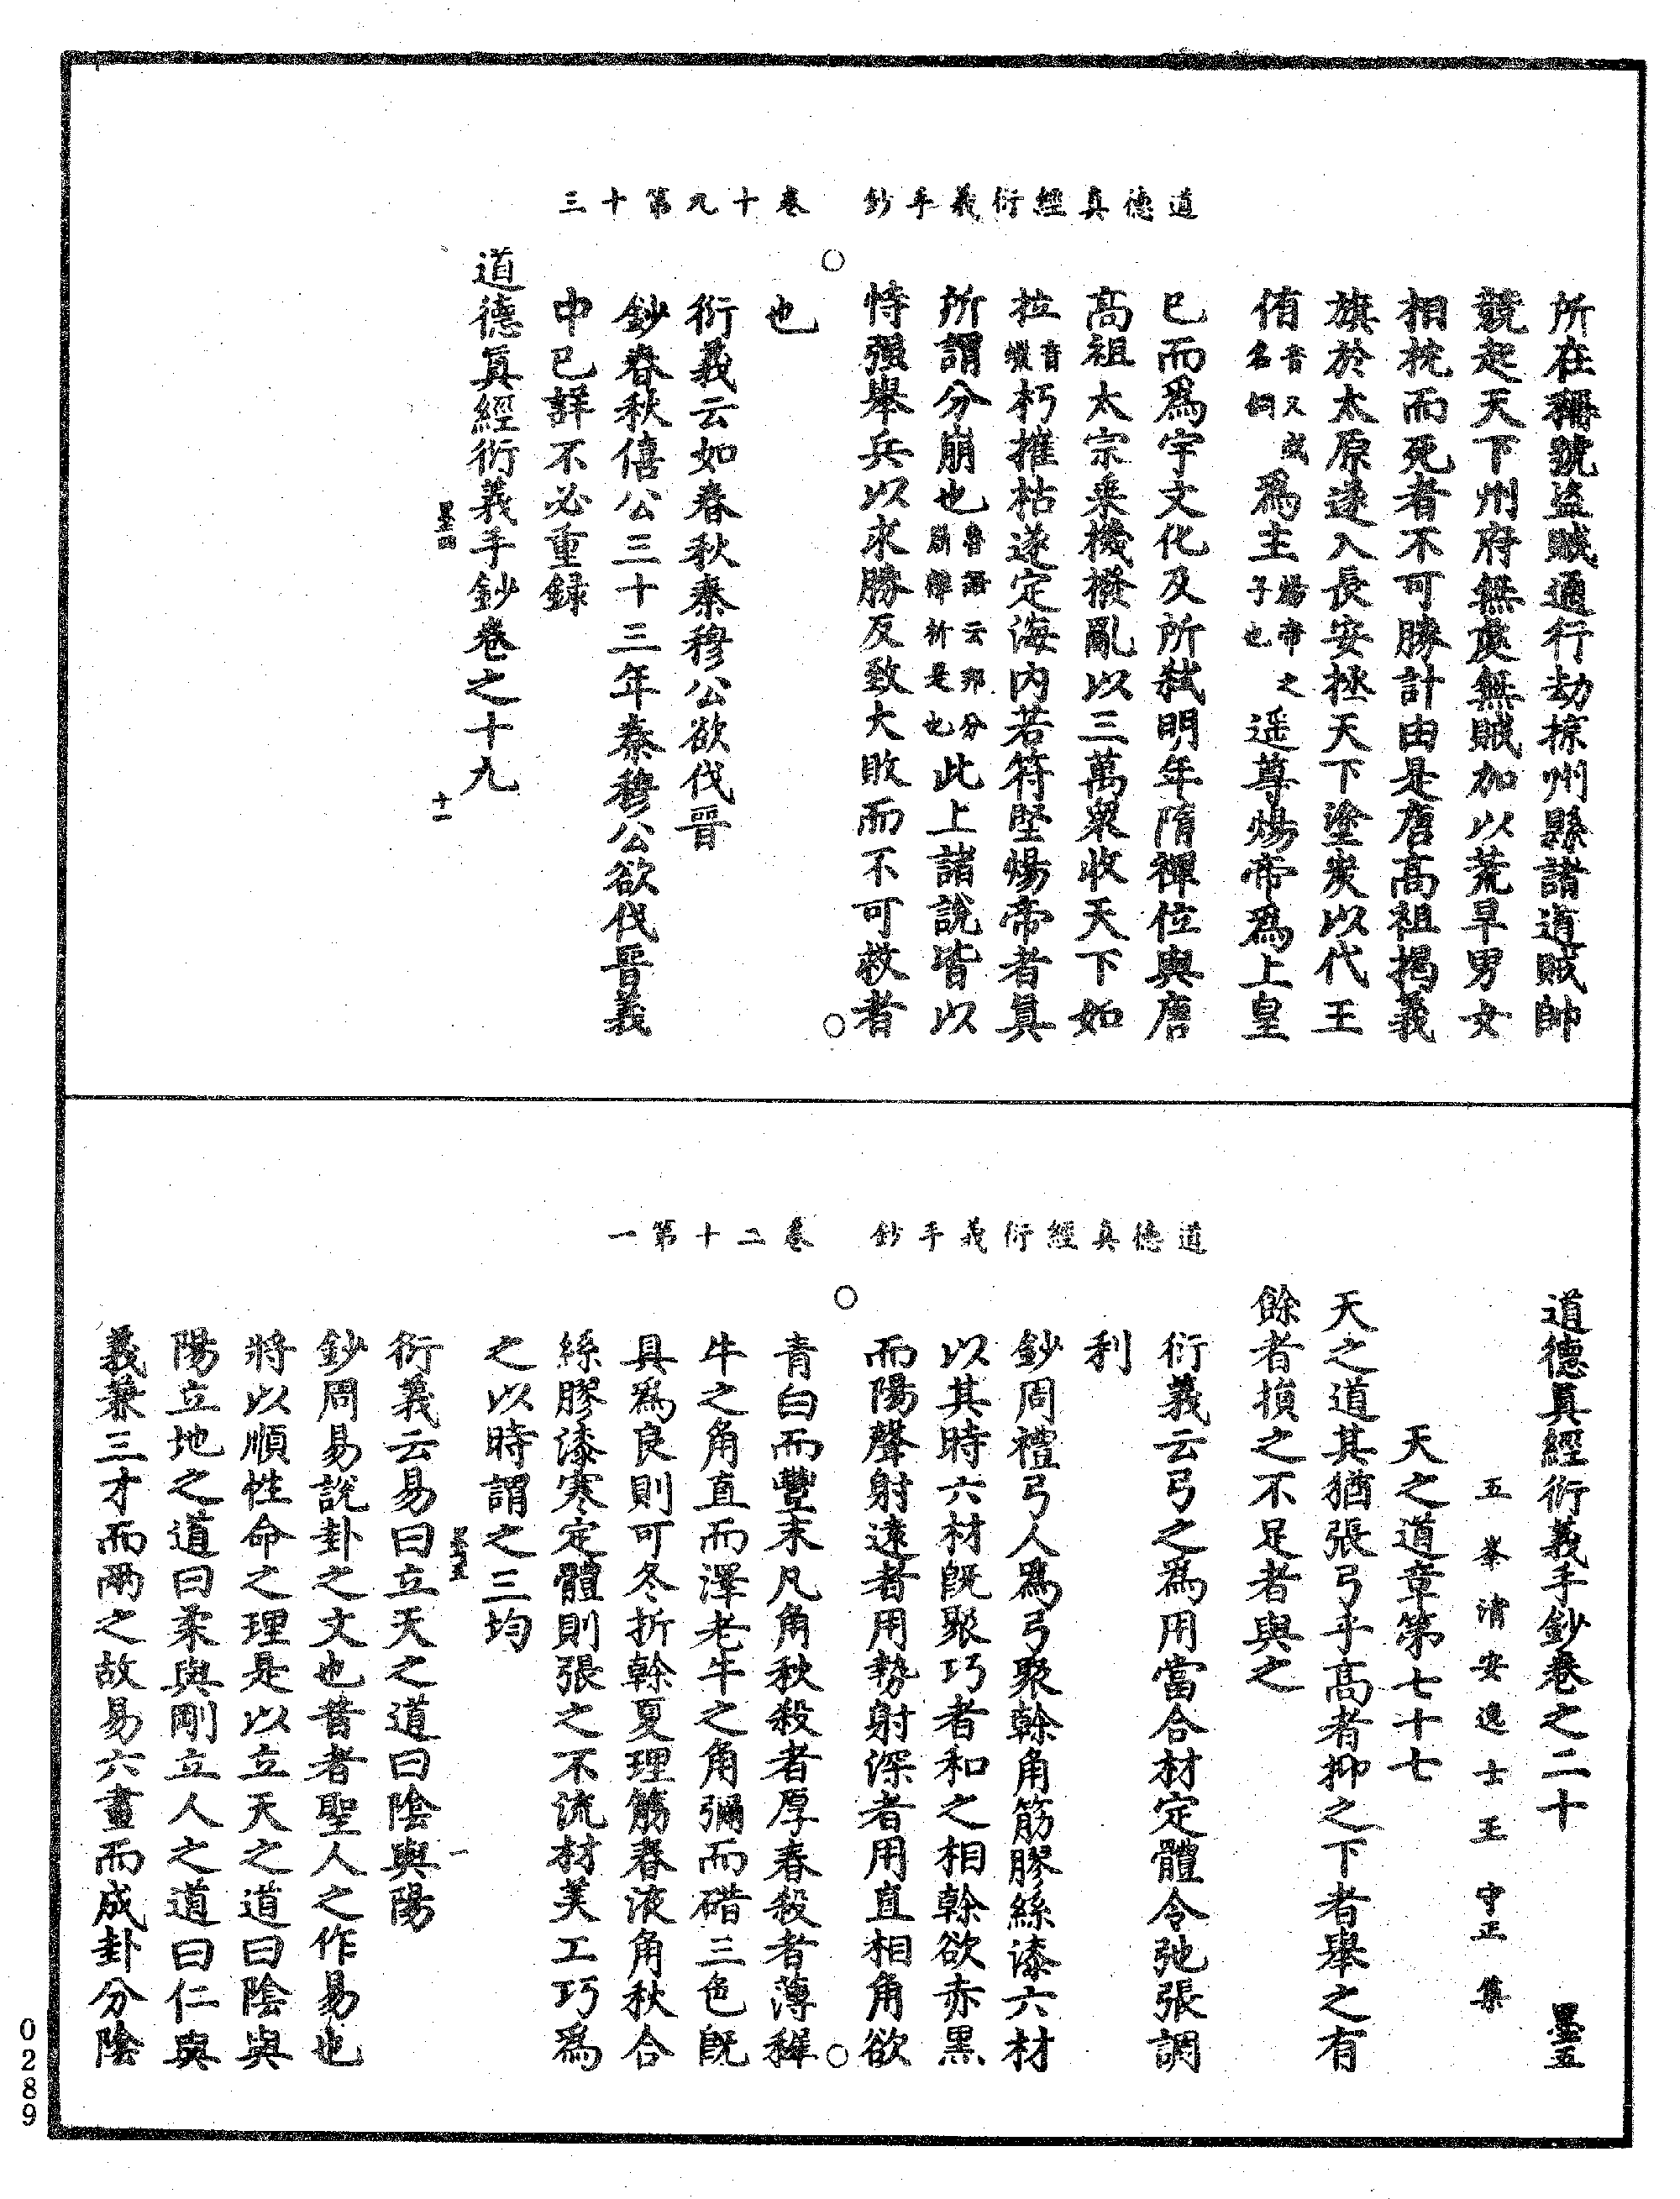 道德真經衍義手鈔　卷十九第十三
所在稱號盜賊通行劫掠州縣諸道賊帥
競起天下州府無處無賊加以荒旱男女
相枕而死者不可勝計由是唐高祖揭義
旗於太原遂入長安拯天下塗炭以代王
侑音又或名侗爲主煬帝之子也遥尊煬帝爲上皇
巳而爲宇文化及所弑明年隋禪位與唐
高祖太宗乘機撥亂以三萬衆收天下如
拉音朽摧枯遂定海内若符堅煬帝者眞
所謂分崩也魯語云邦分崩離析是也此上諸說皆以
恃强舉兵以求勝反致大敗而不可救者
也
衍義云如春秋秦穆公欲伐晉
鈔春秋僖公三十三年秦穆公欲伐晉義
中已詳不必重録
道德眞經衍義手鈔卷之十九
墨四　十二
道德真經衍義手鈔　卷二十第一
道德眞經衍義手鈔卷之二十　墨五
五峯清安逸士王守正集
天之道章第七十七
天之道其猶張弓乎高者抑之下者舉之有
餘者損之不足者與之
衍義云弓之爲用當合材定體令弛張調
利
鈔周禮弓人爲弓聚幹角筋膠絲漆六材
以其時六材旣聚巧者和之相幹欲赤黑
而陽聲射遠者用勢射深者用直相角欲
青白而豐末凡角秋殺者厚春殺者薄穉
牛之角直而澤老牛之角彌而碏三色旣
具爲良則可冬折幹夏理筋春液角秋合
絲膠漆寒定體則張之不流材美工巧爲
之以時謂之三均
墨五　一
衍義云易曰立天之道曰陰與陽
鈔周易說卦之文也昔者聖人之作易也
將以順性命之理是以立天之道曰陰與
陽立地之道曰柔與剛立人之道曰仁與
義兼三才而兩之故易六畫而成卦分陰
0289